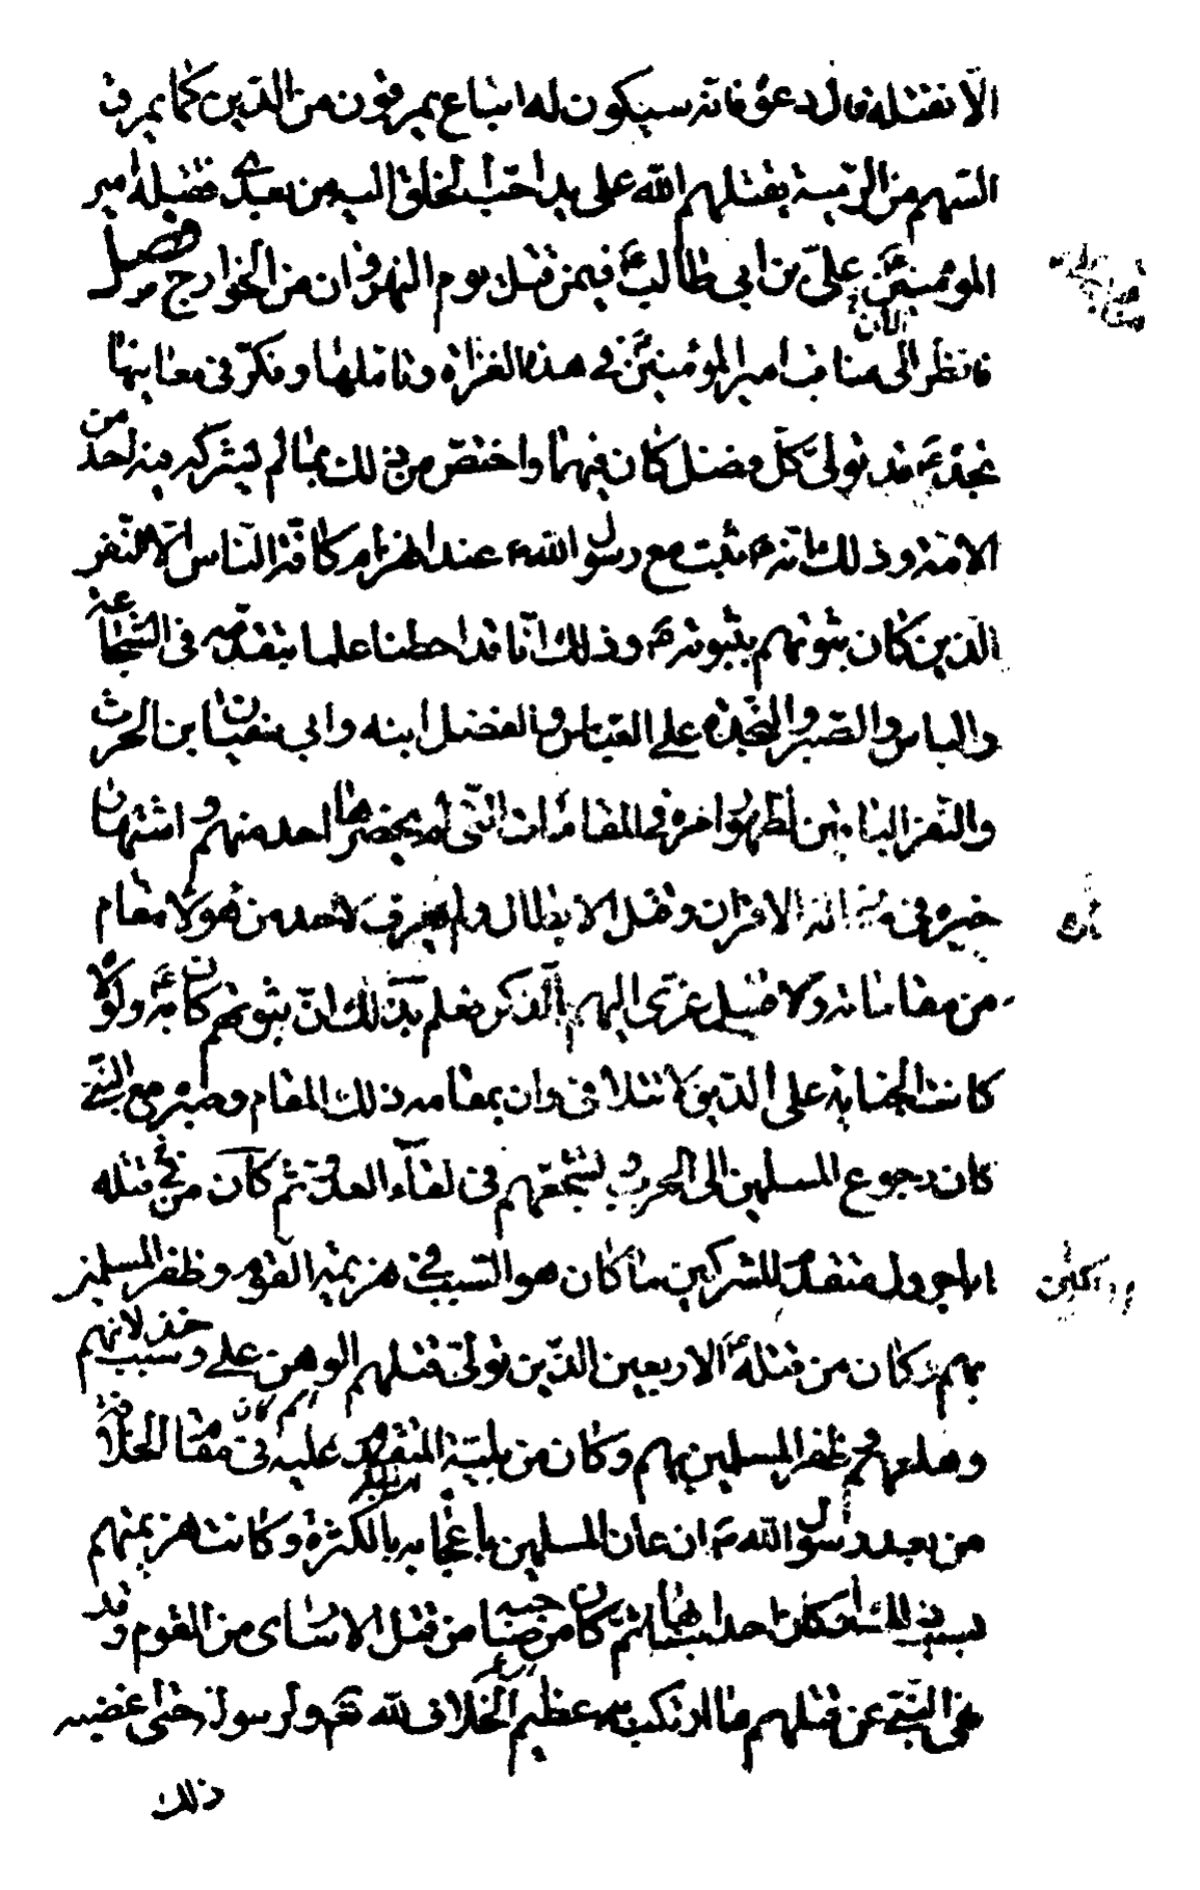 الا نقتله فقال دعوه فانه سيكون له اتباع يمرقون من الدين كما يمرق
السهم من الرمية يقتلهم الله على يد احب الخلق اليه من بعدي فقتله امير
المؤمنين علي بن ابي طالب ع فيمن قتل يوم النهروان من الخوارج فصل
فانظر الان الى مناقب امير المؤمنين ع في هذه الغزاة وتاملها وفكر في معانيها
تجده ع قد تولى كل فضل كان فيها واختص من ذلك بما لم يشركه فيه احد من
الامة وذلك انه ع ثبت مع رسول الله ص عند انهزام كافة الناس الا النفر
الذين كان ثبوتهم بثبوته ع وذلك انا قد احطنا علما بتقدمه في الشجاعة
والباس والصبر والنجدة على العباس والفضل ابنه وابي سفيان بن الحرث
والنفر الباقين لظهور امره في المقامات التي لم يحضرها احد منهم واشتهار
خبره في منازلة الاقران وقتل الابطال ولم يعرف لاحد من هؤلاء مقام
من مقاماته ولا قتيل عزي اليهم بالذكر فعلم بذلك ان ثبوتهم كان به ع ولولاه
كانت الجناية على الدين لا تتلافى وان بمقامه ذلك المقام وصبره مع النبي
كان رجوع المسلمين الى الحرب وتشجعهم في لقاء العدو ثم كان من قتله
ابا جرول متقدم المشركين ما كان هو السبب في هزيمة القوم وظفر المسلمين
بهم وكان من قتله ع الاربعين الذين تولى قتلهم الوهن على وسبب خذلانهم
وهلعهم وظفر المسلمين بهم وكان من بلية المتقدم عليه في مقام الخلافة
من بعد رسول الله ص ان عان المسلمين باعجابه بالكثرة وكانت هزيمتهم
بسبب ذلك او كان احد اسبابها ثم كان من صاحبه من قتل الاسارى من القوم وقد
نهى النبي عن قتلهم ما ارتكب به عظيم الخلاف لله تعالى ولرسوله حتى اغضبه
ذلك